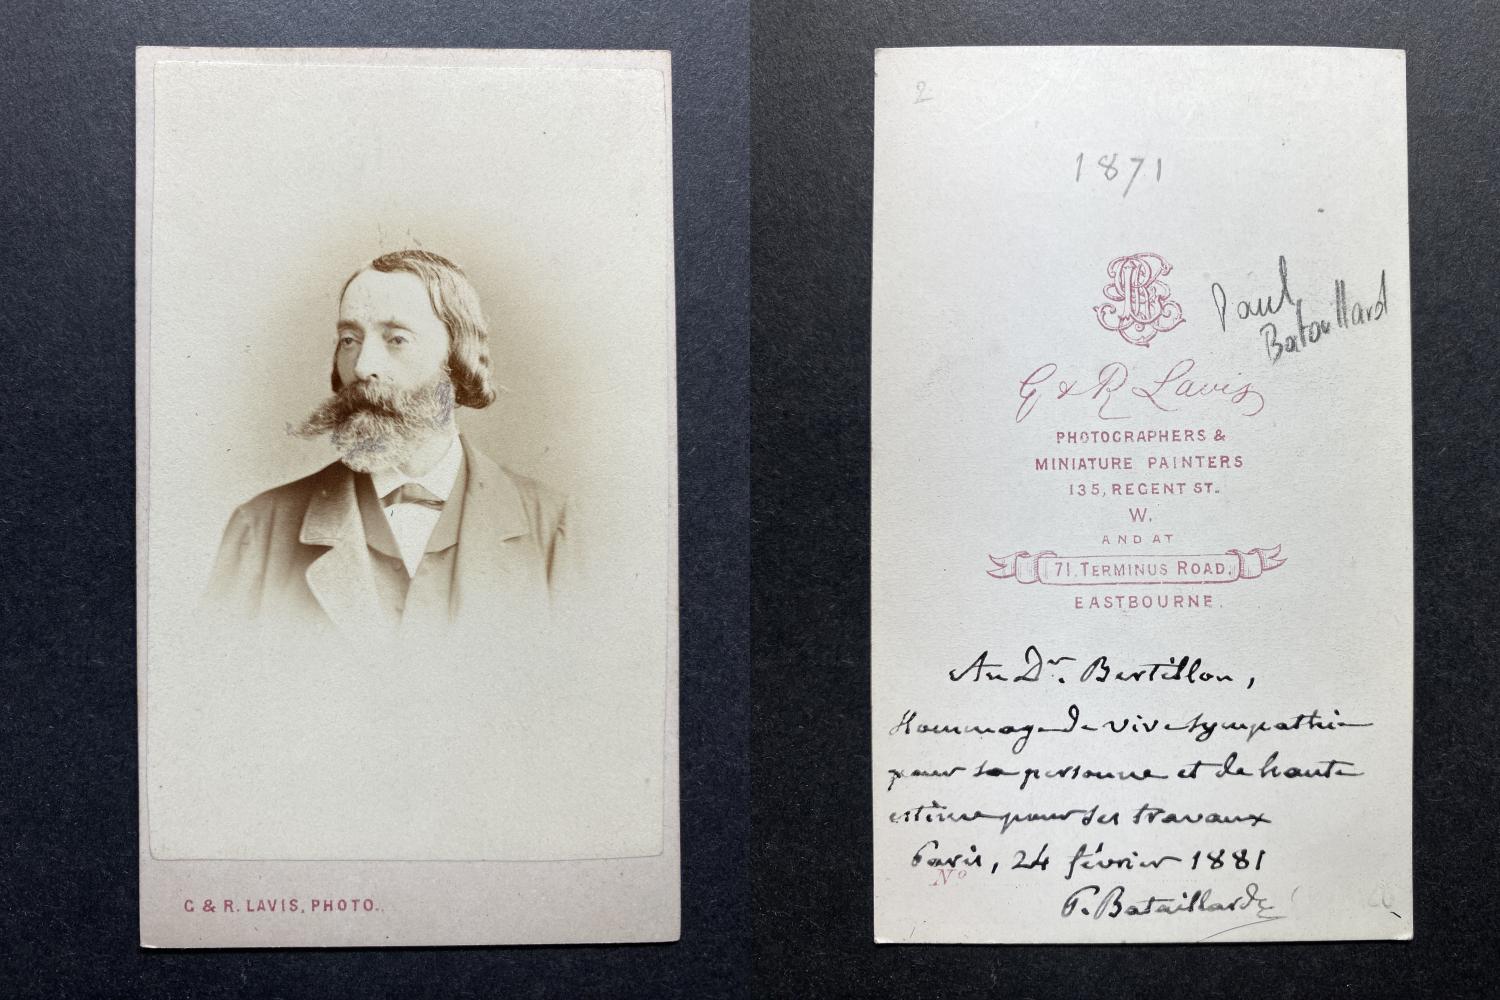 G & R. LAVIS, PHOTO.
2
1871
Paul
Bataillard
G & R Lavis
PHOTOGRAPHERS &
MINIATURE PAINTERS
135, REGENT ST.
W.
AND AT
71, TERMINUS ROAD,
EASTBOURNE.
Au Dr. Bertillon,
Hommage de vive sympathie
pour sa personne et de haute
estime pour ses travaux
Paris, 24 février 1881
No
P. Bataillard